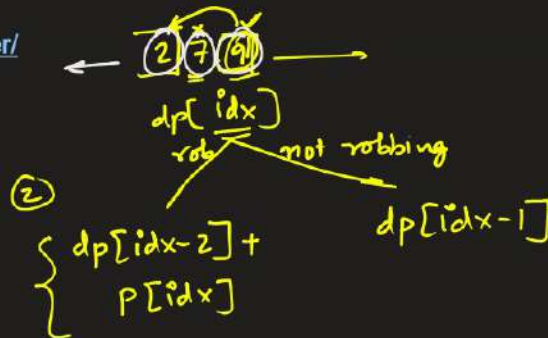 er/
2 7 9
dp[idx]
rob not robbing
②
dp[idx-2]+ dp[idx-1]
P[idx]